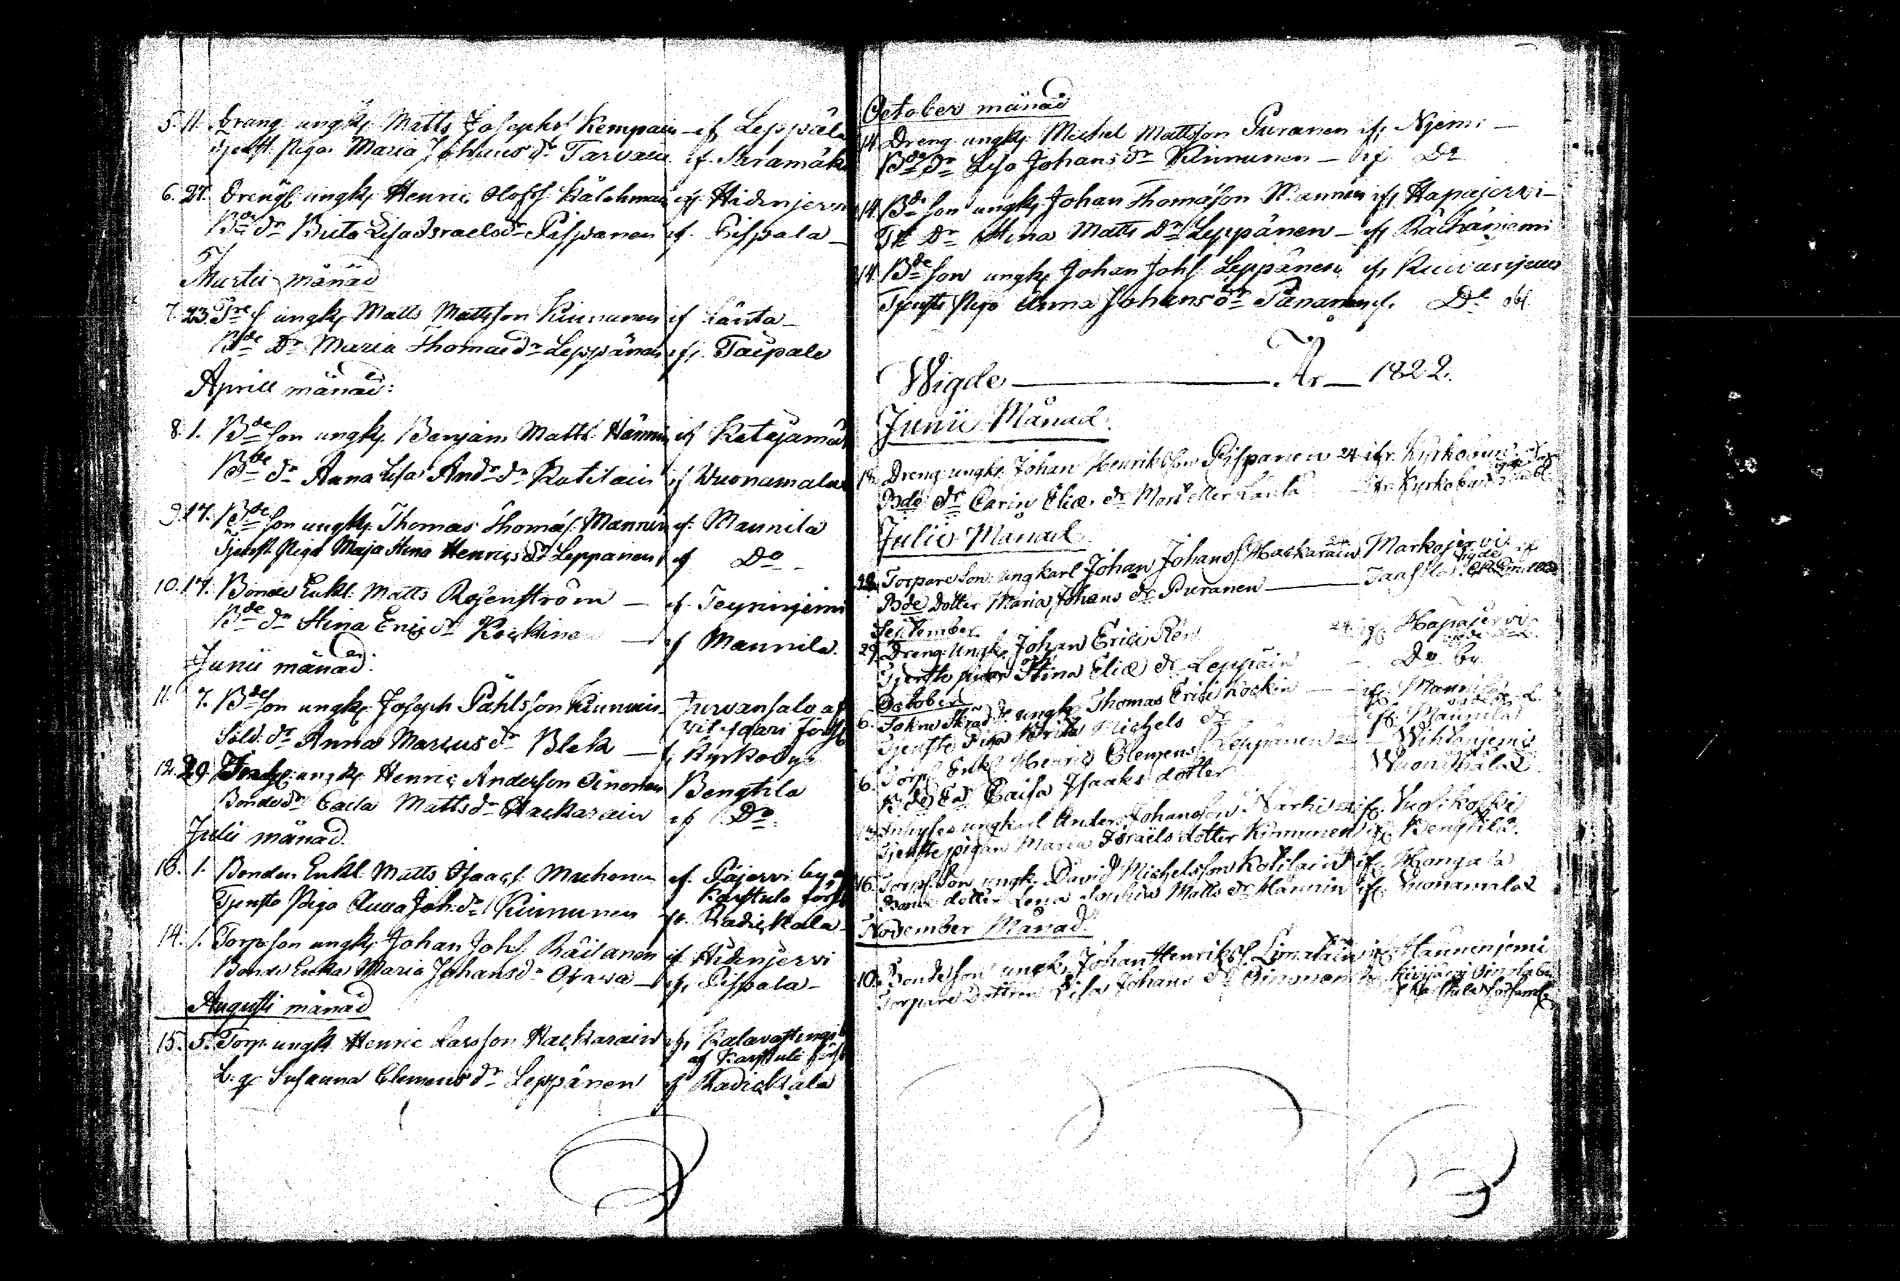 5. 11. Dräng ungk. Matts Josephs. Kempain - if Leppäl
Tjenst. Piga Maria Johans dr Tarvain if. Saramäk
6. 27. Drengl. ungk. Henric Olofs. Kälchmain if Hidenjervi
Bde dr Brita Lisa Israels dr Pispanen if. Pispala -
Martii månad
7. 23. ungk. Matts Mattsson Kinnunen if Länta -
Bde Dr Maria Thomæ dr Leppänen if. Taipale
Aprill månad:
8. 1. Bde son ungk. Benjam Matts. Hännin if Ketejamäk
Bde dr Anna Lisa And. dr Kotilain if Wuonamala
9. 17. Bde son ungk. Thomas Thomas. Mannin if. Mannila
Tjenst. Piga Maja Stina Henrics dr Leppänen if Do -
10. 17. Bonde Enkl. Matts Rosenström - if. Teyrinjemi
Bde dr Stina Erics dr Kockinen - if Mannila.
Junii månad:
11. 7. Bde son ungk. Joseph Påhlsson Kinnunin - Jurvansalo af
Witasaari förs
Sold. dr Anna Marcus dr Blek - if Kyrkoby
12. 29. ungk. Henric Andersson Oinonen Bengtila
Bonde dr Caisa Matts dr Hackarain if Do.
Julii månad.
13. 1. Bonden Enkl. Matts Isaacs. Muhonen if. Päjervi by
Karstula förs
Tjenste Piga Anna Joh. dr Kinnunen if. Kadickala
14. 1. Torp. son ungk. Johan Johs. Räisänen if Hidenjervi
Bonde Enka Maria Johans dr Orawa - if. Pispala -
Augusti månad
15. 5. Torp. ungk. Henric Larsson Hackarain if. Kalavattingi
af Karstula förs
b. q. Susanna Clemens dr Leppänen if Kadickala
October månad
14. Dreng ungk. Michel Mattsson Puranen if. Njemi -
Bde Dr Lisa Johans dr Kinnunen - if Do
14. Bde Son ungk. Johan Thomasson Mannin if. Hapajervi -
Dr Stina Matts Dr Leppänen - if Rächänjemi
14. Bde Son ungk. Johan Johs. Leppänen if. Kuivasjervi
Tjenste Piga Anna Johans dr Pananen if. Do
Wigde - År - 1822.
Junii Månad.
Dreng ungk. Johan Henriksson Pispanen 24 if. Kyrkobyn
Bde dr Carin Eliæ dr eller Länta - if. Kyrkobyn
Julii Månad.
Torpare Son ungkarl Johan Johans. Hackarain 24 Markojervi
Bde Dotter Maria Johans dr Puranen
September
29. Dreng Ungk. Johan Erici 24 if. Hapajervi
Tjenste pigan Stina Eliæ dr Leppäin - Do by.
October
6. ungk. Thomas Erici Kockin - if. Mannila
Tjenste Piga Brita Michels dr if. Mannila
6. Torp. Enkl. Henric Clemens. Leppänen Wihtanjemi
Caisa Isaaks dotter Wuonamala
Inhyses ungkarl Anders Johansson Närhi if. Vuosikoski
Tjenste pigan Maria Israels dotter Kinnunen if. Bengtila.
16. Torp. Son ungk. David Michelsson Kotilain if. Hongala
Bonde dotter Lena Sophia Matts dr Hännin if. Vuonamala
November Månad.
10. Bondeson ungk. Johan Henriks. if. Hännenjemi
Torpare dottren Lisa Johans dr Oinonen if. Kivijervi by
Karstula församl.